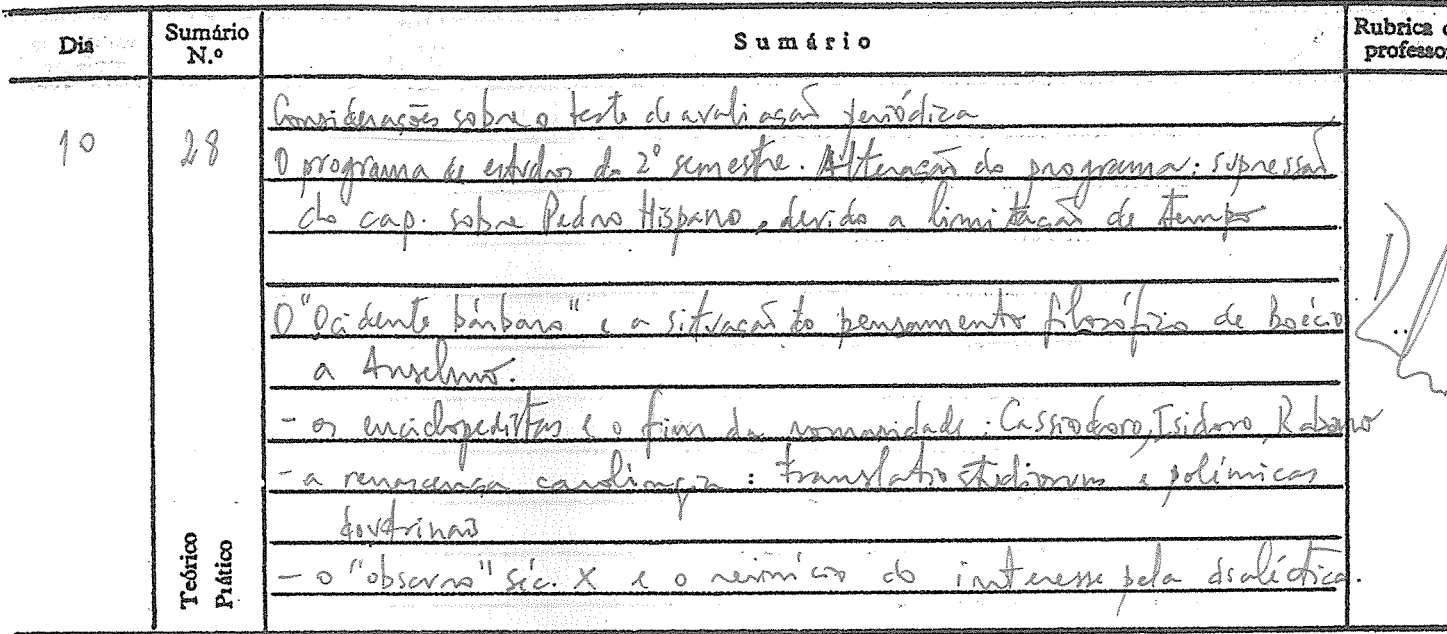 Dia Sumário N.º Sumário Rubrica d professor
10 28 Considerações sobre o teste de avaliação periódica
O programa de estudos do 2º semestre. Alteração do programa: supressão
do cap. sobre Pedro Hispano, devido a limitação de tempo
O "Ocidente bárbaro" e a situação do pensamento filosófico de Boécio
a Anselmo.
- os enciclopedistas e o fim da romanidade: Cassiodoro, Isidoro, Rabano
- a renascença carolíngia: translatio studiorum e polémicas
doutrinais
- o "obscuro" séc. X e o reinício do interesse pela dialéctica.
Teórico
Prático